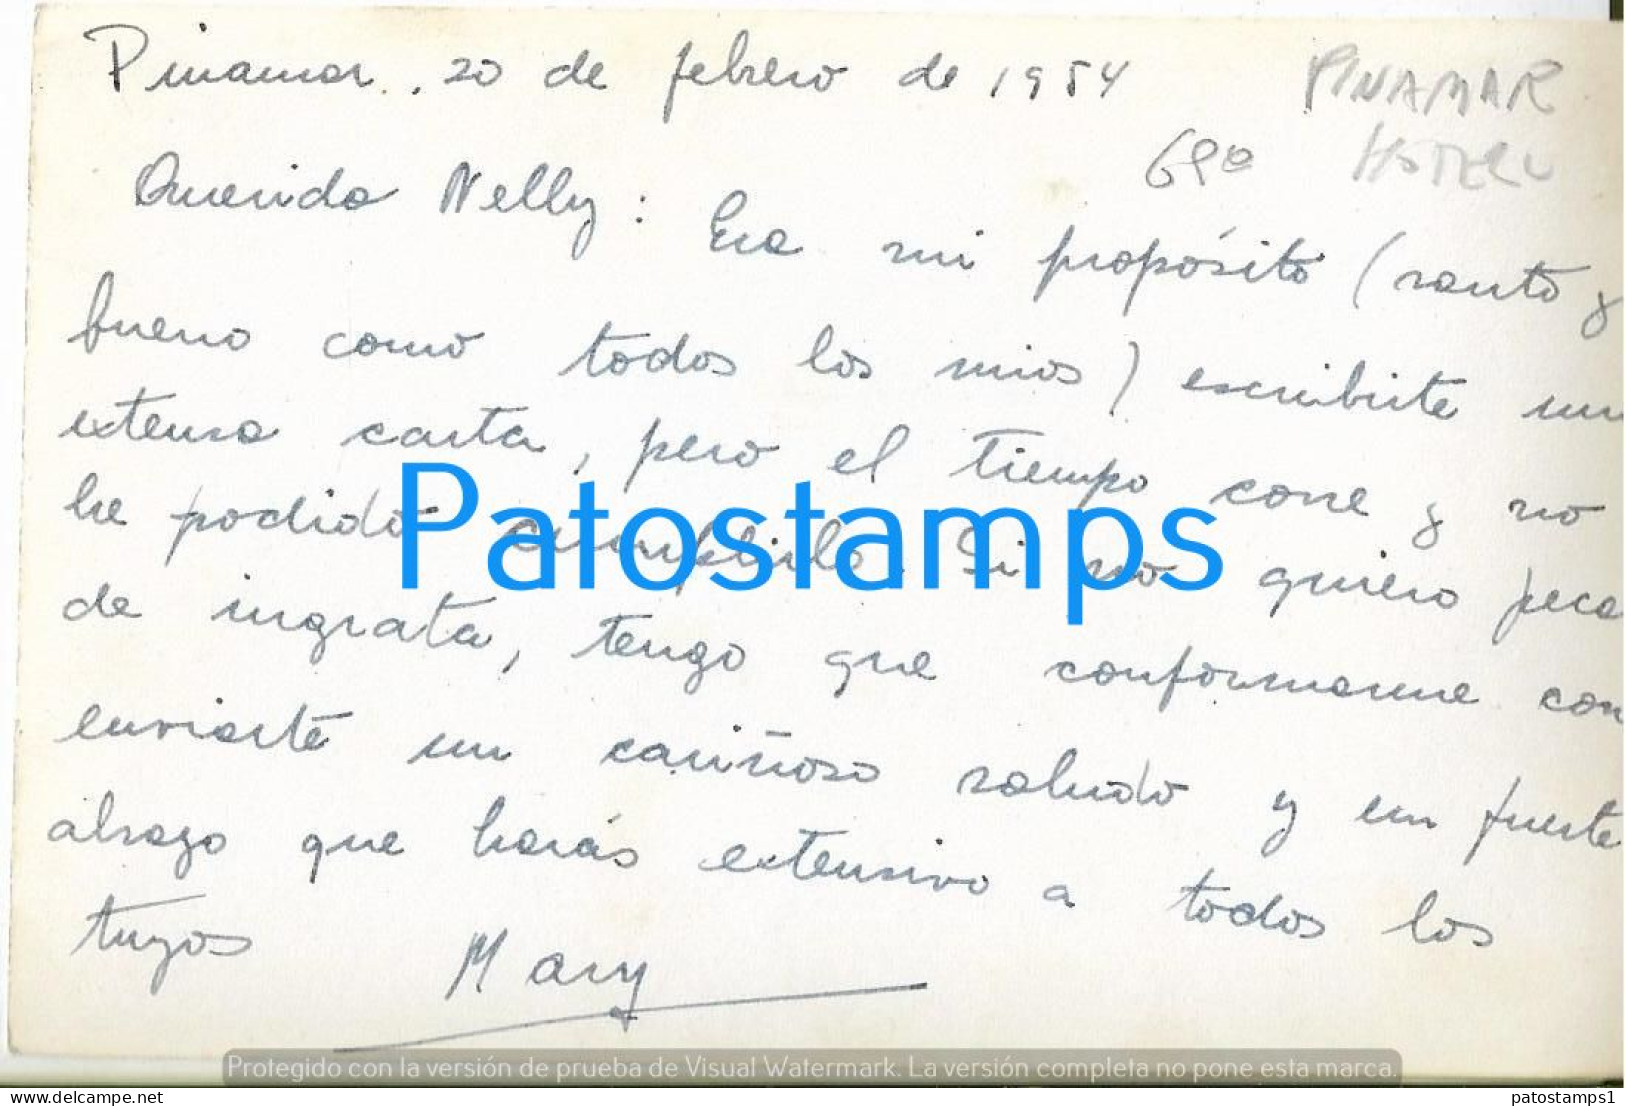 Pinamar, 20 de febrero de 1954
PINAMAR
HOTEL
Querida Nelly: Era mi propósito (santo y
bueno como todos los mios) escribirte un
extensa carta, pero el tiempo corre y no
he podido cumplirlo. Si no quiero peca
de ingrata, tengo que conformarme con
enviarte un cariñoso saludo y un fuerte
abrazo que harás extensivo a todos los
tuyos
Mary
Patostamps
Protegido con la versión de prueba de Visual Watermark. La versión completa no pone esta marca.
www.delcampe.net
patostamps1